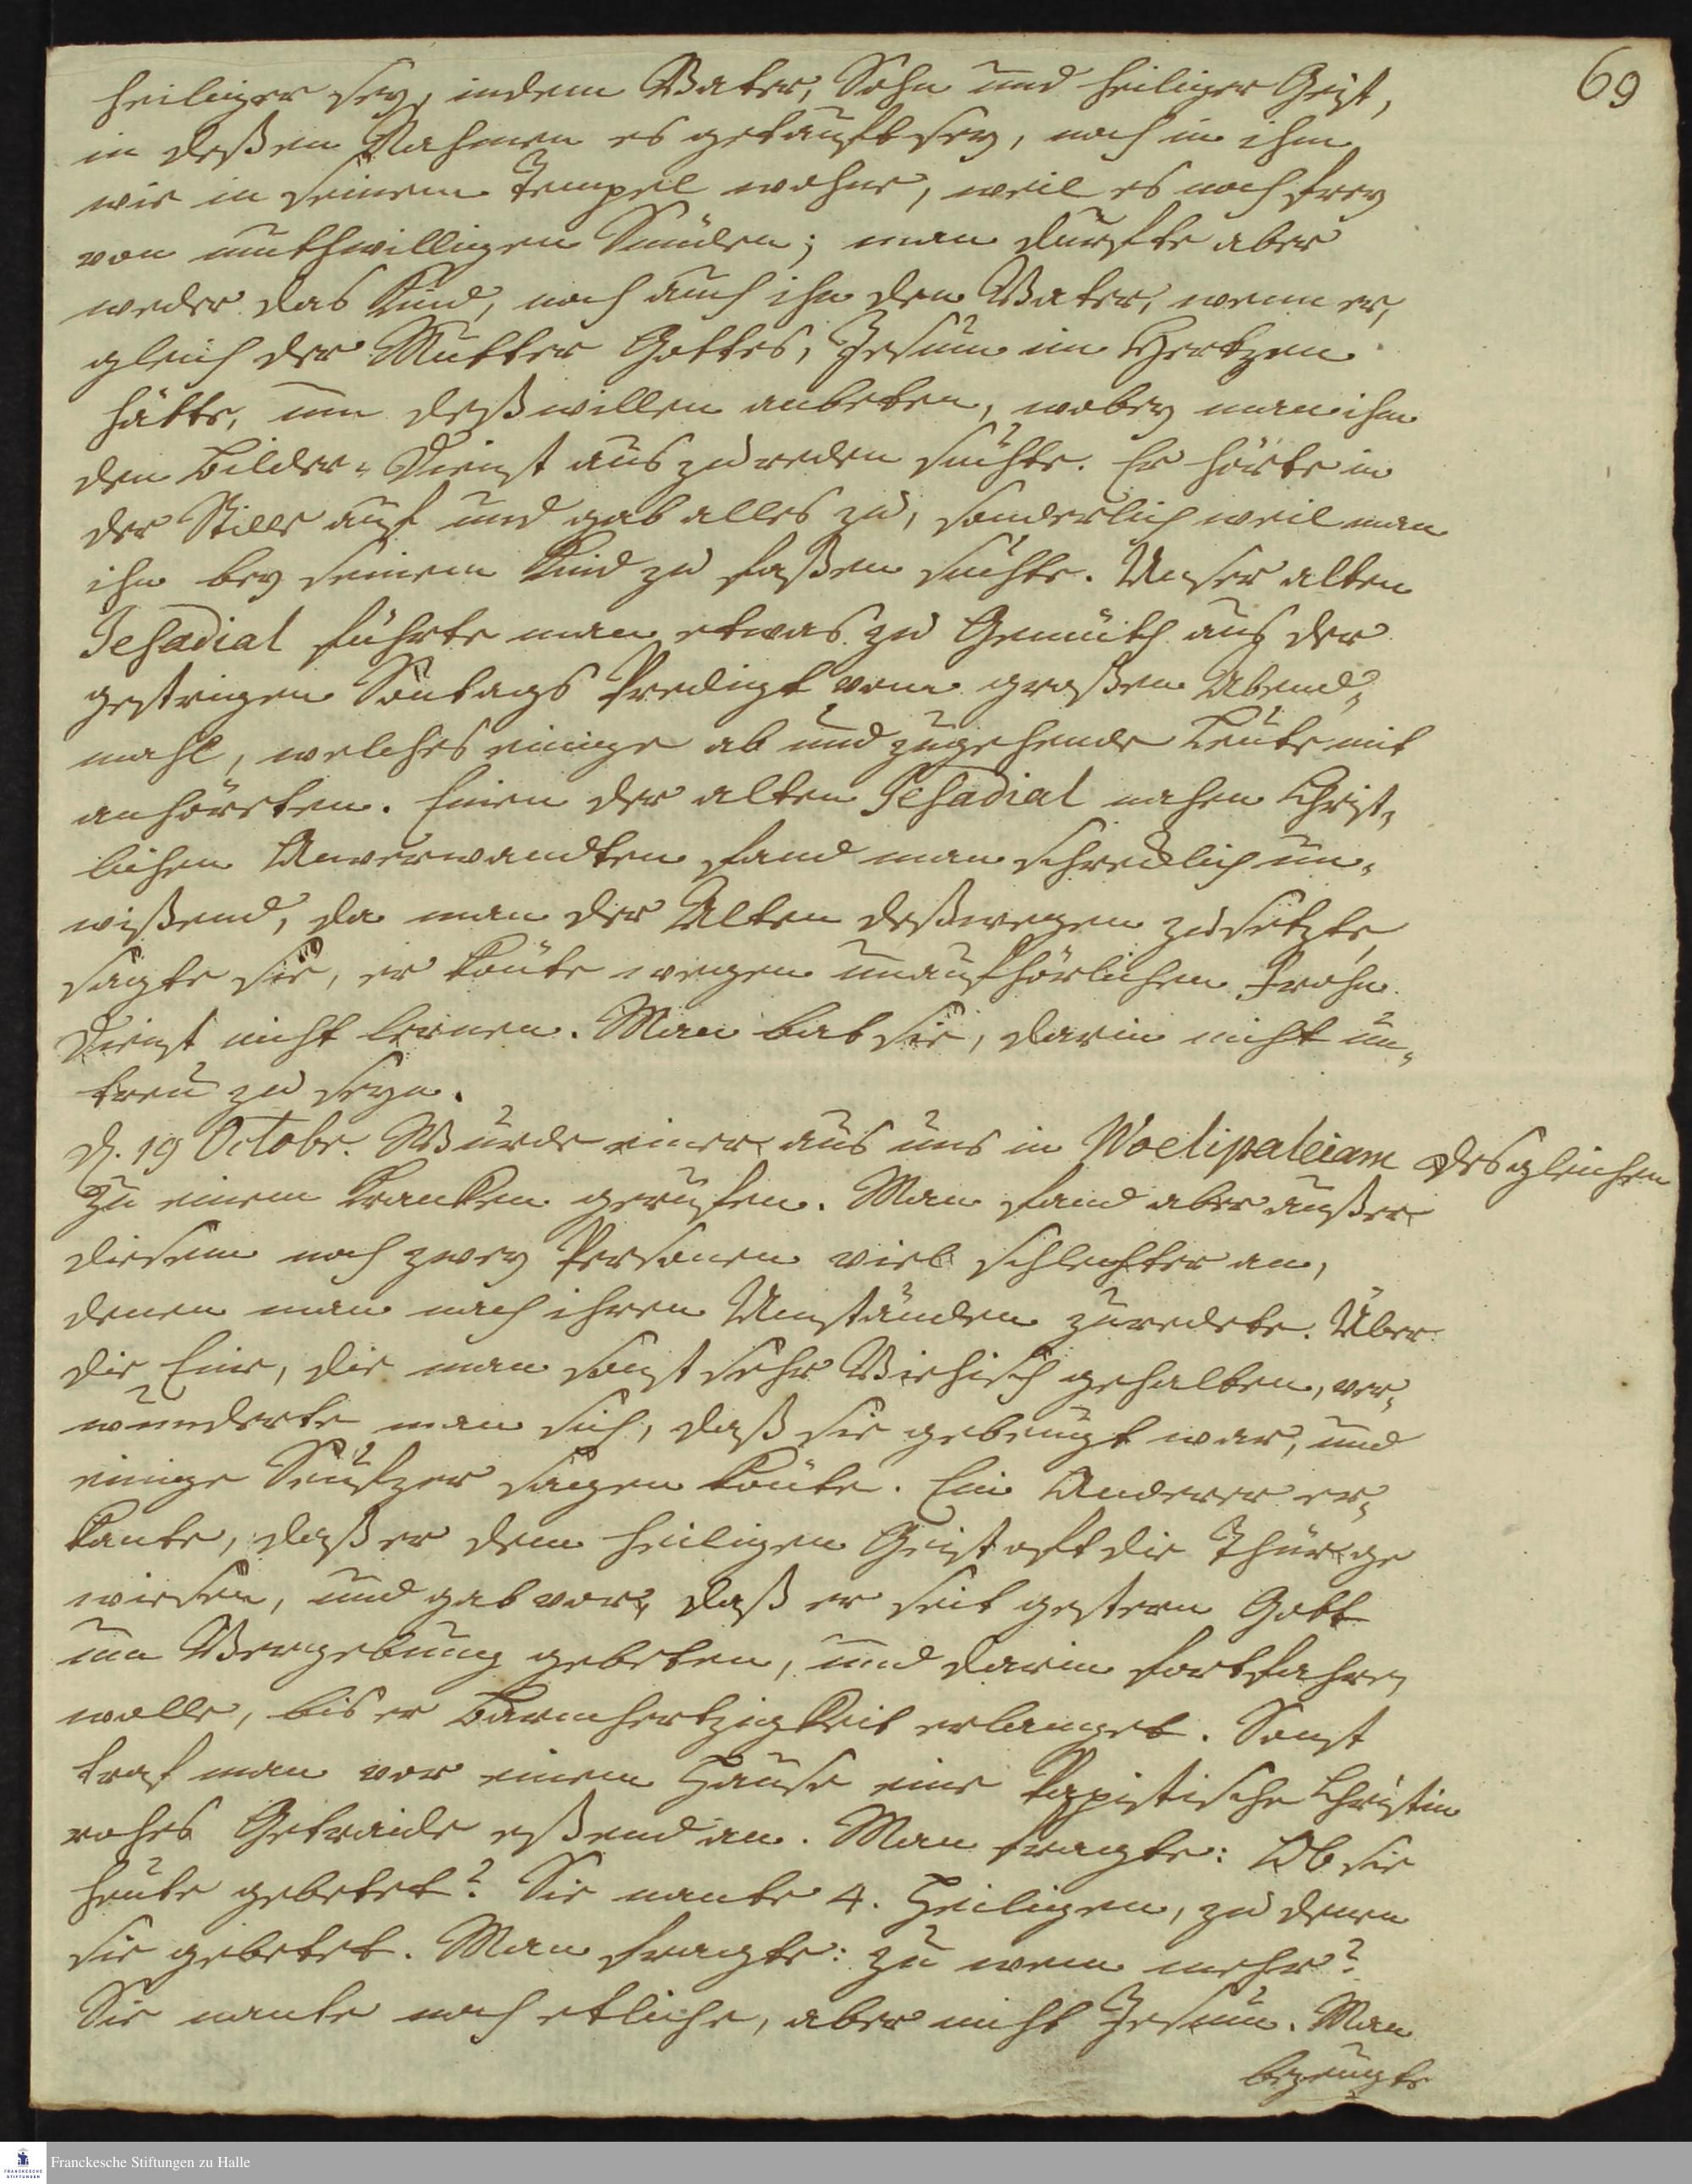 69
heiliger sey, indem Vater, Sohn und heiliger Geist,
in deßen Nahmen es getauft sey, noch in ihm
wie in seinem Tempel wohne, weil es noch frey
von muthwilligen Sünden; man dürfte aber
weder das Kind, noch auch ihn den Vater, wenn er,
gleich der Mutter Gottes, Jesum im Hertzen
hätte, um deßwillen anbeten, wobey man ihm
den Bilder-Dienst auszureden suchte. Er hörte in
der Stille auf und gab alles zu, sonderlich weil man
ihn bey seinem Kind zu faßen suchte. Unser alten
Jesadial führte man etwas zu Gemüth aus der
gestrigen Sontags Predigt vom großen Abend-
mahl, welches einige ab und zugehende Leute mit
anhörten. Einen der alten Jesadial nahen Christ-
lichen Anverwandten fand man schrecklich un-
wißend, da man der Alten deßwegen zusetzte,
sagte sie, er könte wegen unaufhörlichen Frohn
Dienst nicht lernen. Man bat sie, darin nicht un-
treu zu seyn.
d. 19 Octobr. Wurde einer aus uns in Woelipaleiam desgleichen
zu einem Krancken gerufen. Man fand aber außer
diesem noch zwey Personen viel schlechter an,
denen man nach ihren Umständen zuredete. Über
die Eine, die man sonst sehr Viehisch gehalten, ver-
wunderte man sich, daß sie gebeugt war, und
einige Seufzer sagen konte. Ein Anderer er-
kante, daß er dem heiligen Geist oft die Thür ge
wiesen, und gab vor, daß er seit gestern Gott
um Vergebung gebeten, und darin fortfahren
wolle, bis er Barmhertzigkeit erlanget. Sonst
traf man vor einem Hause eine Papistische Christin
rohes Getraide eßend an. Man fragte: Ob sie
heute gebetet? Sie nante 4. Heiligen, zu denen
sie gebetet. Man fragte: zu wem mehr?
Sie nante noch etliche, aber nicht Jesum. Man
bezeugte
Franckesche Stiftungen zu Halle
FRANCKESCHE
STIFTUNGEN